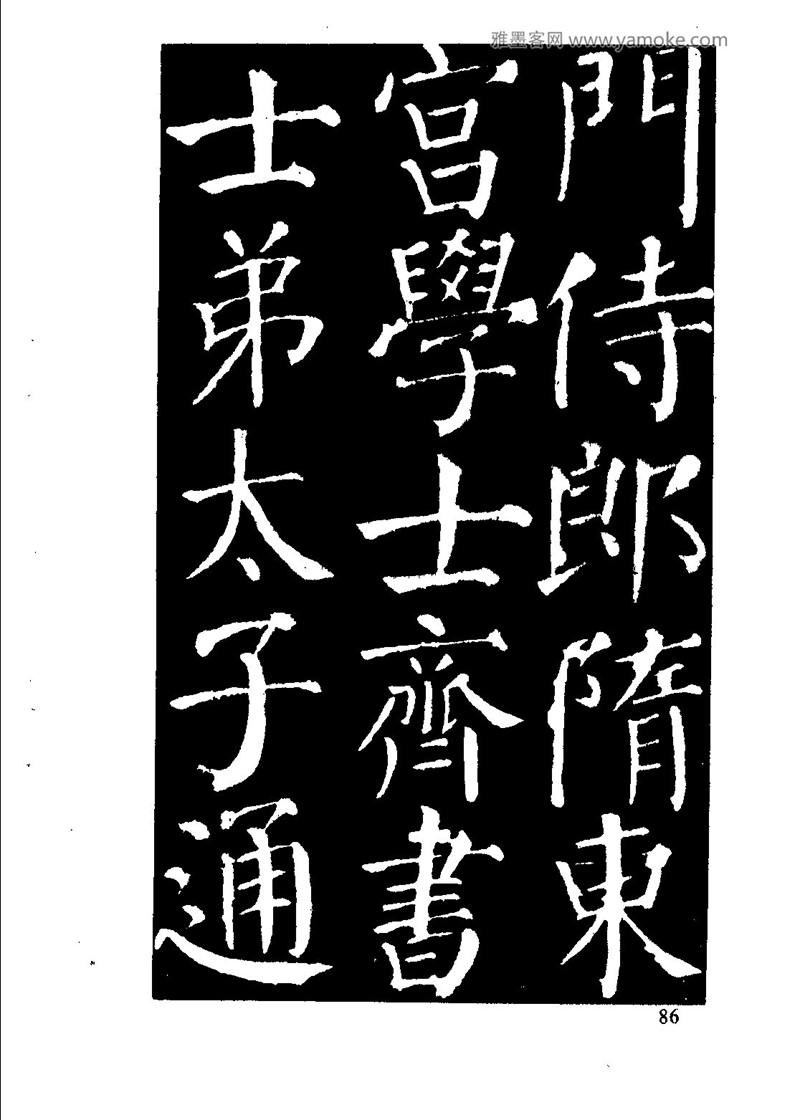 雅墨客网 www.yamoke.com
門侍郎隋東
宮學士齊書
士弟太子通
86